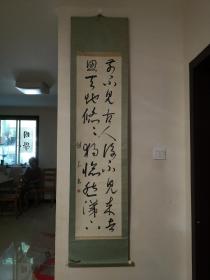 前不見古人後不見来者
思天地悠〻獨愴然涕下